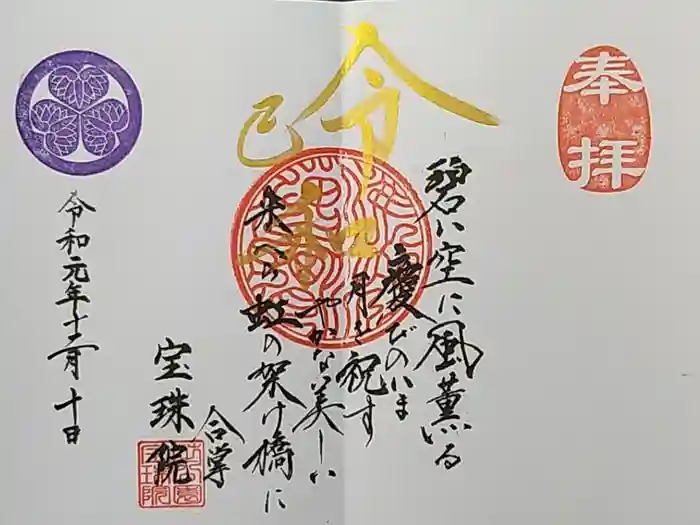 奉拝
令和
己
碧い空に風薫る
慶びのいま
月を祝す
やかない美しい
来へ 虹の架け橋に
合掌
宝珠院
令和元年十二月十日